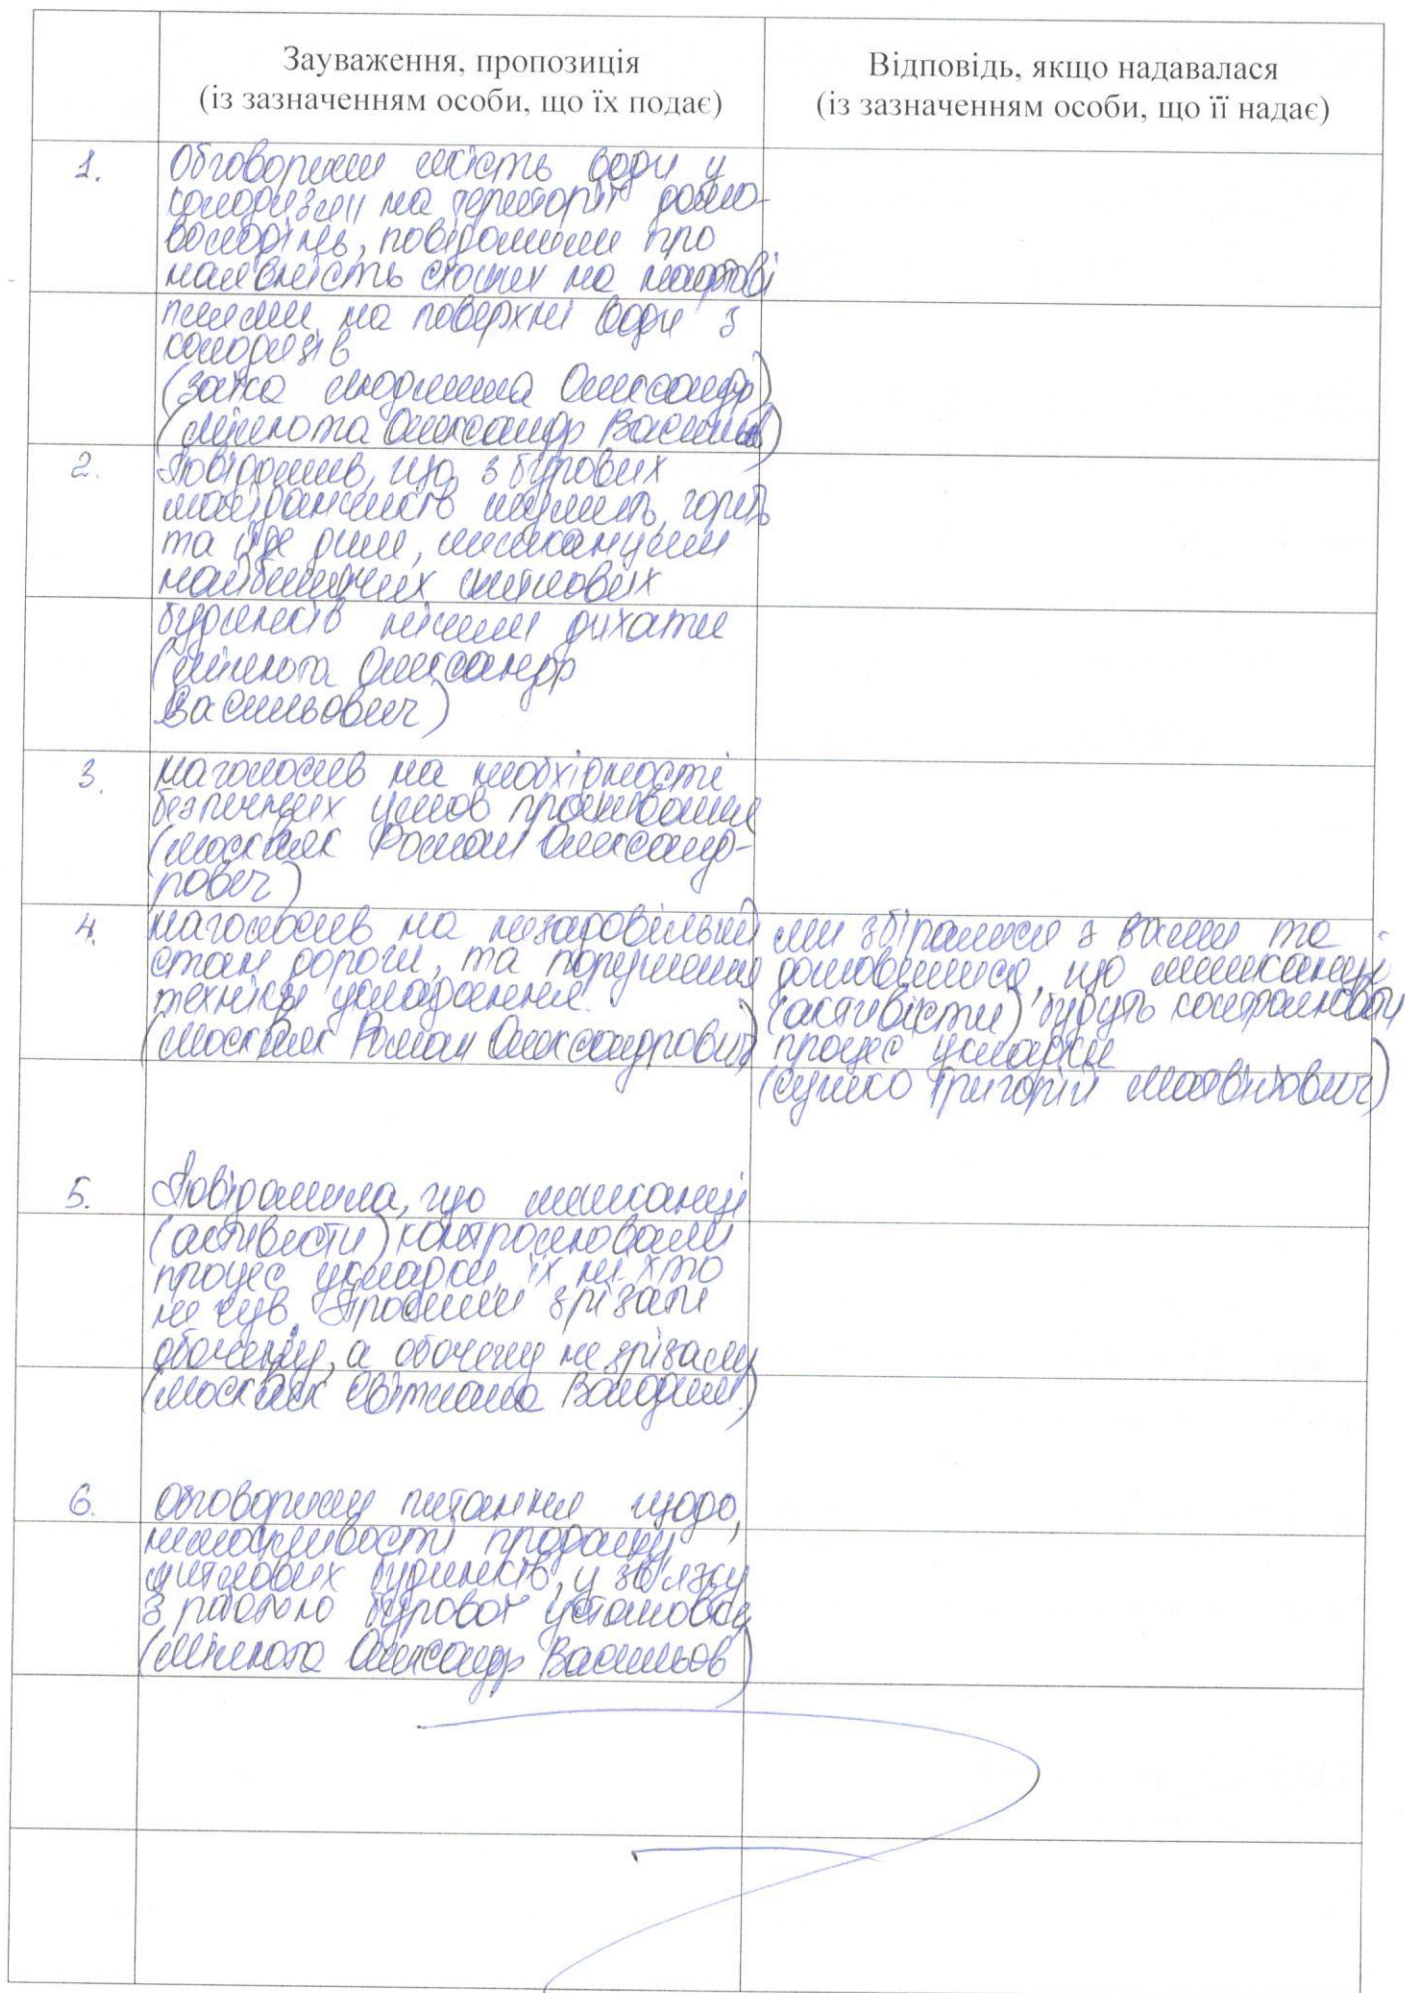 Зауваження, пропозиція
(із зазначенням особи, що їх подає)
Відповідь, якщо надавалася
(із зазначенням особи, що її надає)
1. Обговорили якість води у
колодязях на території домо-
володінь, повідомили про
наявність схожих на нафтові
плями на поверхні води з
колодязів
(Заїка Людмила Олександр)
(Мінкота Олександр Васильов)
2. Повідомив, що з бурових
майданчиків шумить, горить
та йде дим, мешканцям
найближчих житлових
будинків нічим дихати
(Олександр
Васильович)
3. Наголосив на необхідності
безпечних умов проживання
(Москаляк Роман Олександ-
рович)
4. Наголосив на незадовільний
стан дороги, та порушення
техніки укладання.
(Роман Олександрович)
ми збиралися з вами та
домовилися, що мешканці
(активісти) будуть контролювати
процес укладки
(Сушко Григорій Матвійович)
5. Повідомила, що мешканці
(активісти) контролювали
процес укладки, їх ні хто
не чув. Просили зрізати
обочину, а обочину не зрізали
(Світлана Володим.)
6. Обговорили питання щодо,
неможливості продажу
житлових будинків, у зв'язку
з работою бурової установки
(Олександр Васильов)